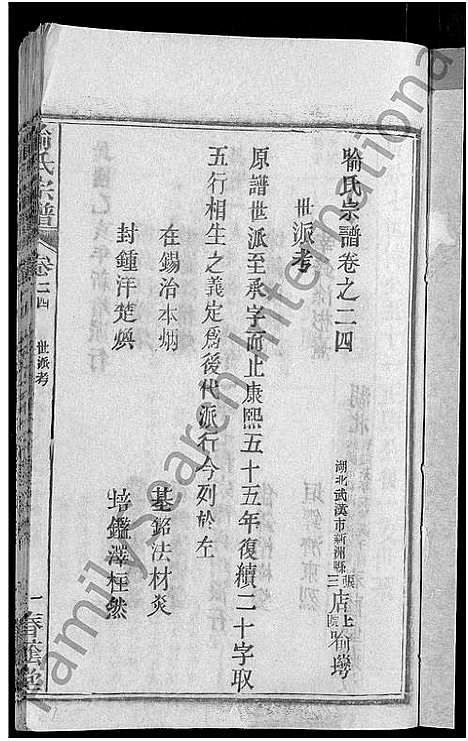 喻氏宗譜卷之二四
湖北武漢市新洲縣張店上喻塆
三
世派考
原譜世派至承字而止康熙五十五年復續二十字取
五行相生之義定爲後代派行今列於左
在錫治本炳 基銘法材炎
封鍾洋楚煥 培鑑澤柱然
喻氏宗譜 卷二四 世派考 一 春蔭堂
FamilySearch International